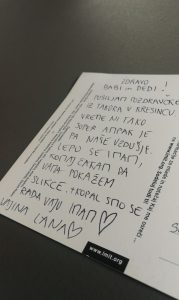 ZDRAVO!
BABI in DEDI!
POŠILJAM POZDRAVČKE
IZ TABORA V KRESNICU
VREME NI TAKO
SUPER AMPAK JE
PA NAŠE VZDUŠJE.
LEPO SE IMAM,
KOMAJ ČAKAM DA
VAMA POKAŽEM
SLIKCE. +KOPAL SMO SE
RADA VAJU IMAM♡
VAJINA LANA♡
www.lmit.org